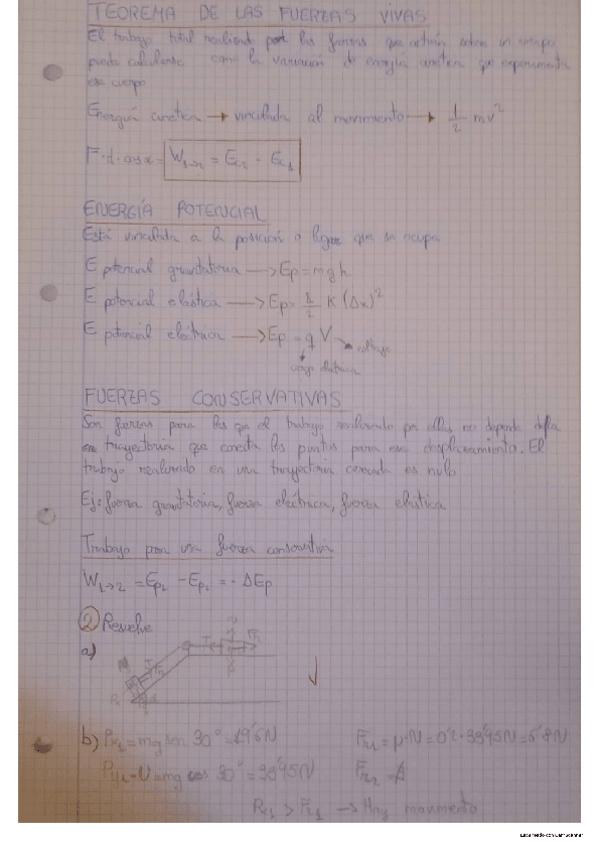 TEOREMA DE LAS FUERZAS VIVAS
El trabajo total realizado por las fuerzas que actúan sobre un cuerpo
puede calcularse como la variación de energía cinética que experimenta
ese cuerpo
Energía cinética → vinculada al movimiento → 1/2 mv²
F·d·cosα = W1→2 = Ec2 - Ec1
ENERGÍA POTENCIAL
Está vinculada a la posición o lugar que se ocupa
E potencial gravitatoria → Ep = mgh
E potencial elástica → Ep = 1/2 K (Δx)²
E potencial eléctrica → Ep = q V → voltaje
carga eléctrica
FUERZAS CONSERVATIVAS
Son fuerzas para las que el trabajo realizado por ellas no depende de la
trayectoria que conecta los puntos para ese desplazamiento. El
trabajo realizado en una trayectoria cerrada es nulo
Ej: fuerza gravitatoria, fuerza eléctrica, fuerza elástica
Trabajo para una fuerza conservativa
W1→2 = Ep1 - Ep2 = - ΔEp
② Resuelve
a)
b) Px1 = mg sen 30° = 19'6N Fr1 = μ·N = 0'2·33'95N = 6'8N
Py1 = N = mg cos 30° = 33'95N Fr2 =
> Fr1 → Hay movimiento